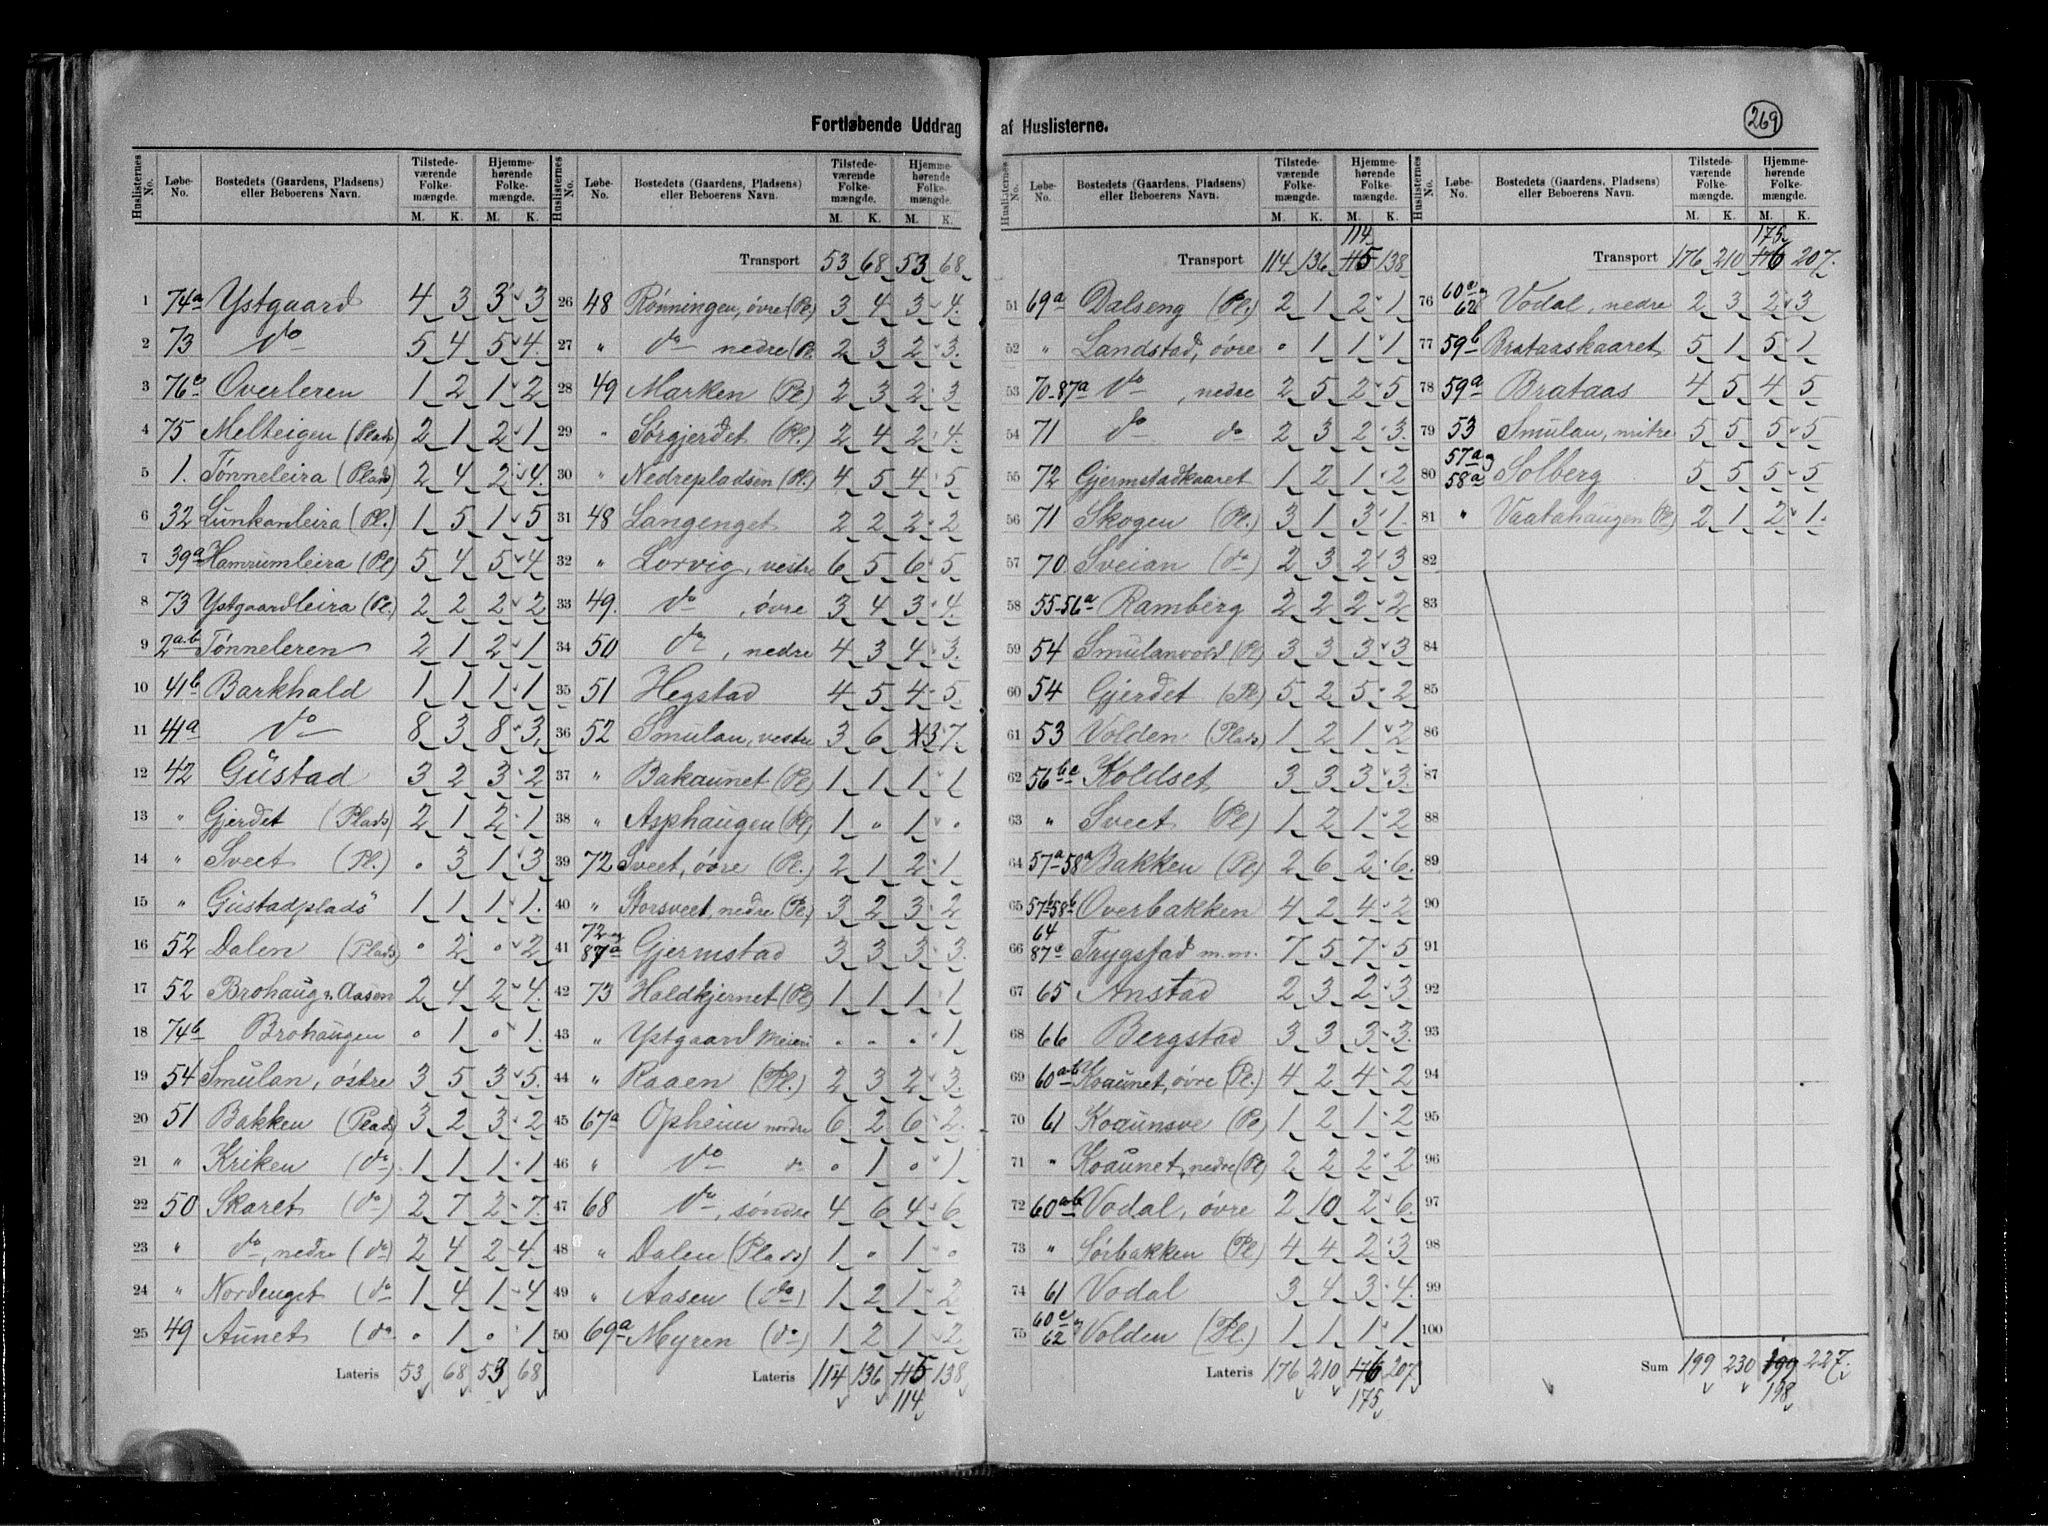 Fortløbende Uddrag af Huslisterne.
269
Huslisternes No. | Løbe-No. | Bostedets (Gaardens, Pladsens) eller Beboerens Navn. | Tilstedeværende Folkemængde. M. K. | Hjemmehørende Folkemængde. M. K.
1 74a Ystgaard 4 3 3 3
2 73 do 5 4 5 4
3 76a Overleren 1 2 1 2
4 75 Melteigen (Plads) 2 1 2 1
5 1. Tønneleira (Plads) 2 4 2 4
6 32 Lunkanleira (Pl.) 1 5 1 5
7 39a Hamrumleira (Pl) 5 4 5 4
8 73 Ystgaardleira (Pl.) 2 2 2 2
9 2a.b Tønneleren 2 1 2 1
10 41b Barkhald 1 1 1 1
11 41a do 8 3 8 3
12 42 Gustad 3 2 3 2
13 " Gjerdet (Plads) 2 1 2 1
14 " Sveet (Pl.) 0 3 1 3
15 " Gustadplads 1 1 1 1
16 52 Dalen (Plads) 0 2 0 2
17 52 Brohaug v. Aasen 2 4 2 4
18 74b Brohaugen 0 1 0 1
19 54 Smulan, østre 3 5 3 5
20 51 Bakken (Plads) 3 2 3 2
21 " Kriken (do) 1 1 1 1
22 50 Skaret (do) 2 7 2 7
23 " do, nedre (do) 2 4 2 4
24 " Nordenget (do 1 4 1 4
25 49 Aunet (do 0 1 0 1
Lateris 53 68 53 68
Transport 53 68 53 68
26 48 Rønningen, øvre (Pl) 3 4 3 4
27 " do nedre (Pl. 2 3 2 3
28 49 Marken (Pl) 2 3 2 3
29 " Sørgjerdet (Pl.) 2 4 2 4
30 " Nedrepladsen (Pl.) 4 5 4 5
31 48 Langenget 2 2 2 2
32 " Lorvig, vestre 6 5 6 5
33 49. do, øvre 3 4 3 4
34 50 do, nedre 4 3 4 3
35 51 Hegstad 4 5 4 5
36 52 Smulan, vestre 3 6 3 7
37 " Bakaunet (Pl) 1 1 1 1
38 " Asphaugen (Pl) 1 0 1 0
39 72 Sveet, øvre (Pl.) 2 1 2 1
40 " Storsveet, nedre (Pl.) 3 2 3 2
41 72 og 87a Gjermstad 3 3 3 3
42 73 Holdkjernet (Pl) 1 1 1 1
43 " Ystgaard Meieri 0 0 0 1
44 " Raaen (Pl.) 2 3 2 3
45 67a Opheim nordre 6 2 6 2
46 " do do 0 1 0 1
47 68 do, søndre 4 6 4 6
48 " Dalen (Plads) 1 0 1 0
49 " Aasen (do) 1 2 1 2
50 69a Myren (do) 1 2 1 2
Lateris 114 136 115 138
114
Transport 114 136 115 138
114
51 69a Dalseng (Pl.) 2 1 2 1
52 " Landstad, øvre 0 1 1 1
53 70-87a do, nedre 2 5 2 5
54 71 do do 2 3 2 3
55 72 Gjermstadkaaret 1 2 1 2
56 71 Skogen (Pl.) 3 1 3 1
57 70 Sveian (do) 2 3 2 3
58 55-56a Ramberg 2 2 2 2
59 54 Smulanvold (Pl) 3 3 3 3
60 54 Gjerdet (Pl) 5 2 5 2
61 53 Volden (Plads) 1 2 1 2
62 56ba Koldset 3 3 3 3
63 " Sveet (Pl) 1 2 1 2
64 57a-58a Bakken (Pl) 2 6 2 6
65 57b58b Overbakken 4 2 4 2
66 64 87a Trygstad m.m. 7 5 7 5
67 65 Anstad 2 3 2 3
68 66 Bergstad 3 3 3 3
69 60ab Koaunet, øvre (Pl.) 4 2 4 2
70 61 Koaunsve (Pl) 1 2 1 2
71 " Koaunet, nedre (Pl) 2 2 2 2
72 60ab Vodal, øvre 2 10 2 6
73 " Sørbakken (Pl) 4 4 2 3
74 61 Vodal 3 4 3 4
75 60a og 62 Volden (Pl.) 1 1 1 1
Lateris 176 210 176 207
175
Transport 176 210 176 207.
175
76 60a og 62 Vodal, nedre 2 3 2 3
77 59b Brataaskaaret 5 1 5 1
78 59a Brataas 4 5 4 5
79 53 Smulan, mitre 5 5 5 5
80 57a og 58a Solberg 5 5 5 5
81 " Vaatahaugen (Pl) 2 1 2 1
82
83
84
85
86
87
88
89
90
91
92
93
94
95
96
97
98
99
100
Sum 199 230 199 227.
198